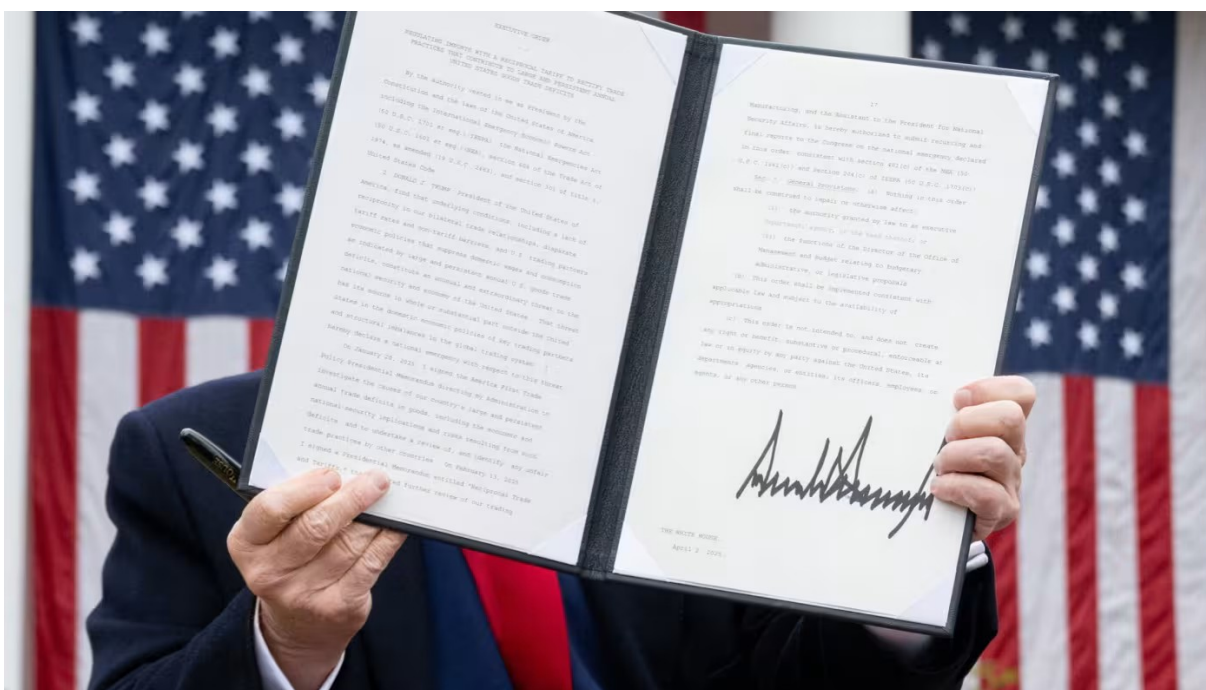 EXECUTIVE ORDER
- - - - - - -
REGULATING IMPORTS WITH A RECIPROCAL TARIFF TO RECTIFY TRADE
PRACTICES THAT CONTRIBUTE TO LARGE AND PERSISTENT ANNUAL
UNITED STATES GOODS TRADE DEFICITS
By the authority vested in me as President by the
Constitution and the laws of the United States of America,
including the International Emergency Economic Powers Act
(50 U.S.C. 1701 et seq.)(IEEPA), the National Emergencies Act
(50 U.S.C. 1601 et seq.)(NEA), section 604 of the Trade Act of
1974, as amended (19 U.S.C. 2483), and section 301 of title 3,
United States Code,
I, DONALD J. TRUMP, President of the United States of
America, find that underlying conditions, including a lack of
reciprocity in our bilateral trade relationships, disparate
tariff rates and non-tariff barriers, and U.S. trading partners'
economic policies that suppress domestic wages and consumption,
as indicated by large and persistent annual U.S. goods trade
deficits, constitute an unusual and extraordinary threat to the
national security and economy of the United States. That threat
has its source in whole or substantial part outside the United
States in the domestic economic policies of key trading partners
and structural imbalances in the global trading system. I
hereby declare a national emergency with respect to this threat.
On January 20, 2025, I signed the America First Trade
Policy Presidential Memorandum directing my Administration to
investigate the causes of our country's large and persistent
annual trade deficits in goods, including the economic and
national security implications and risks resulting from such
deficits, and to undertake a review of, and identify, any unfair
trade practices by other countries. On February 13, 2025,
I signed a Presidential Memorandum entitled "Reciprocal Trade
and Tariffs," that further review of our trading
17
Manufacturing, and the Assistant to the President for National
Security Affairs, is hereby authorized to submit recurring and
final reports to the Congress on the national emergency declared
in this order, consistent with section 401(c) of the NEA (50
U.S.C. 1641(c)) and section 204(c) of IEEPA (50 U.S.C. 1703(c)).
Sec. 7. General Provisions. (a) Nothing in this order
shall be construed to impair or otherwise affect:
(i) the authority granted by law to an executive
department, agency, or the head thereof; or
(ii) the functions of the Director of the Office of
Management and Budget relating to budgetary,
administrative, or legislative proposals.
(b) This order shall be implemented consistent with
applicable law and subject to the availability of
appropriations.
(c) This order is not intended to, and does not, create
any right or benefit, substantive or procedural, enforceable at
law or in equity by any party against the United States, its
departments, agencies, or entities, its officers, employees, or
agents, or any other person.
THE WHITE HOUSE,
April 2, 2025.